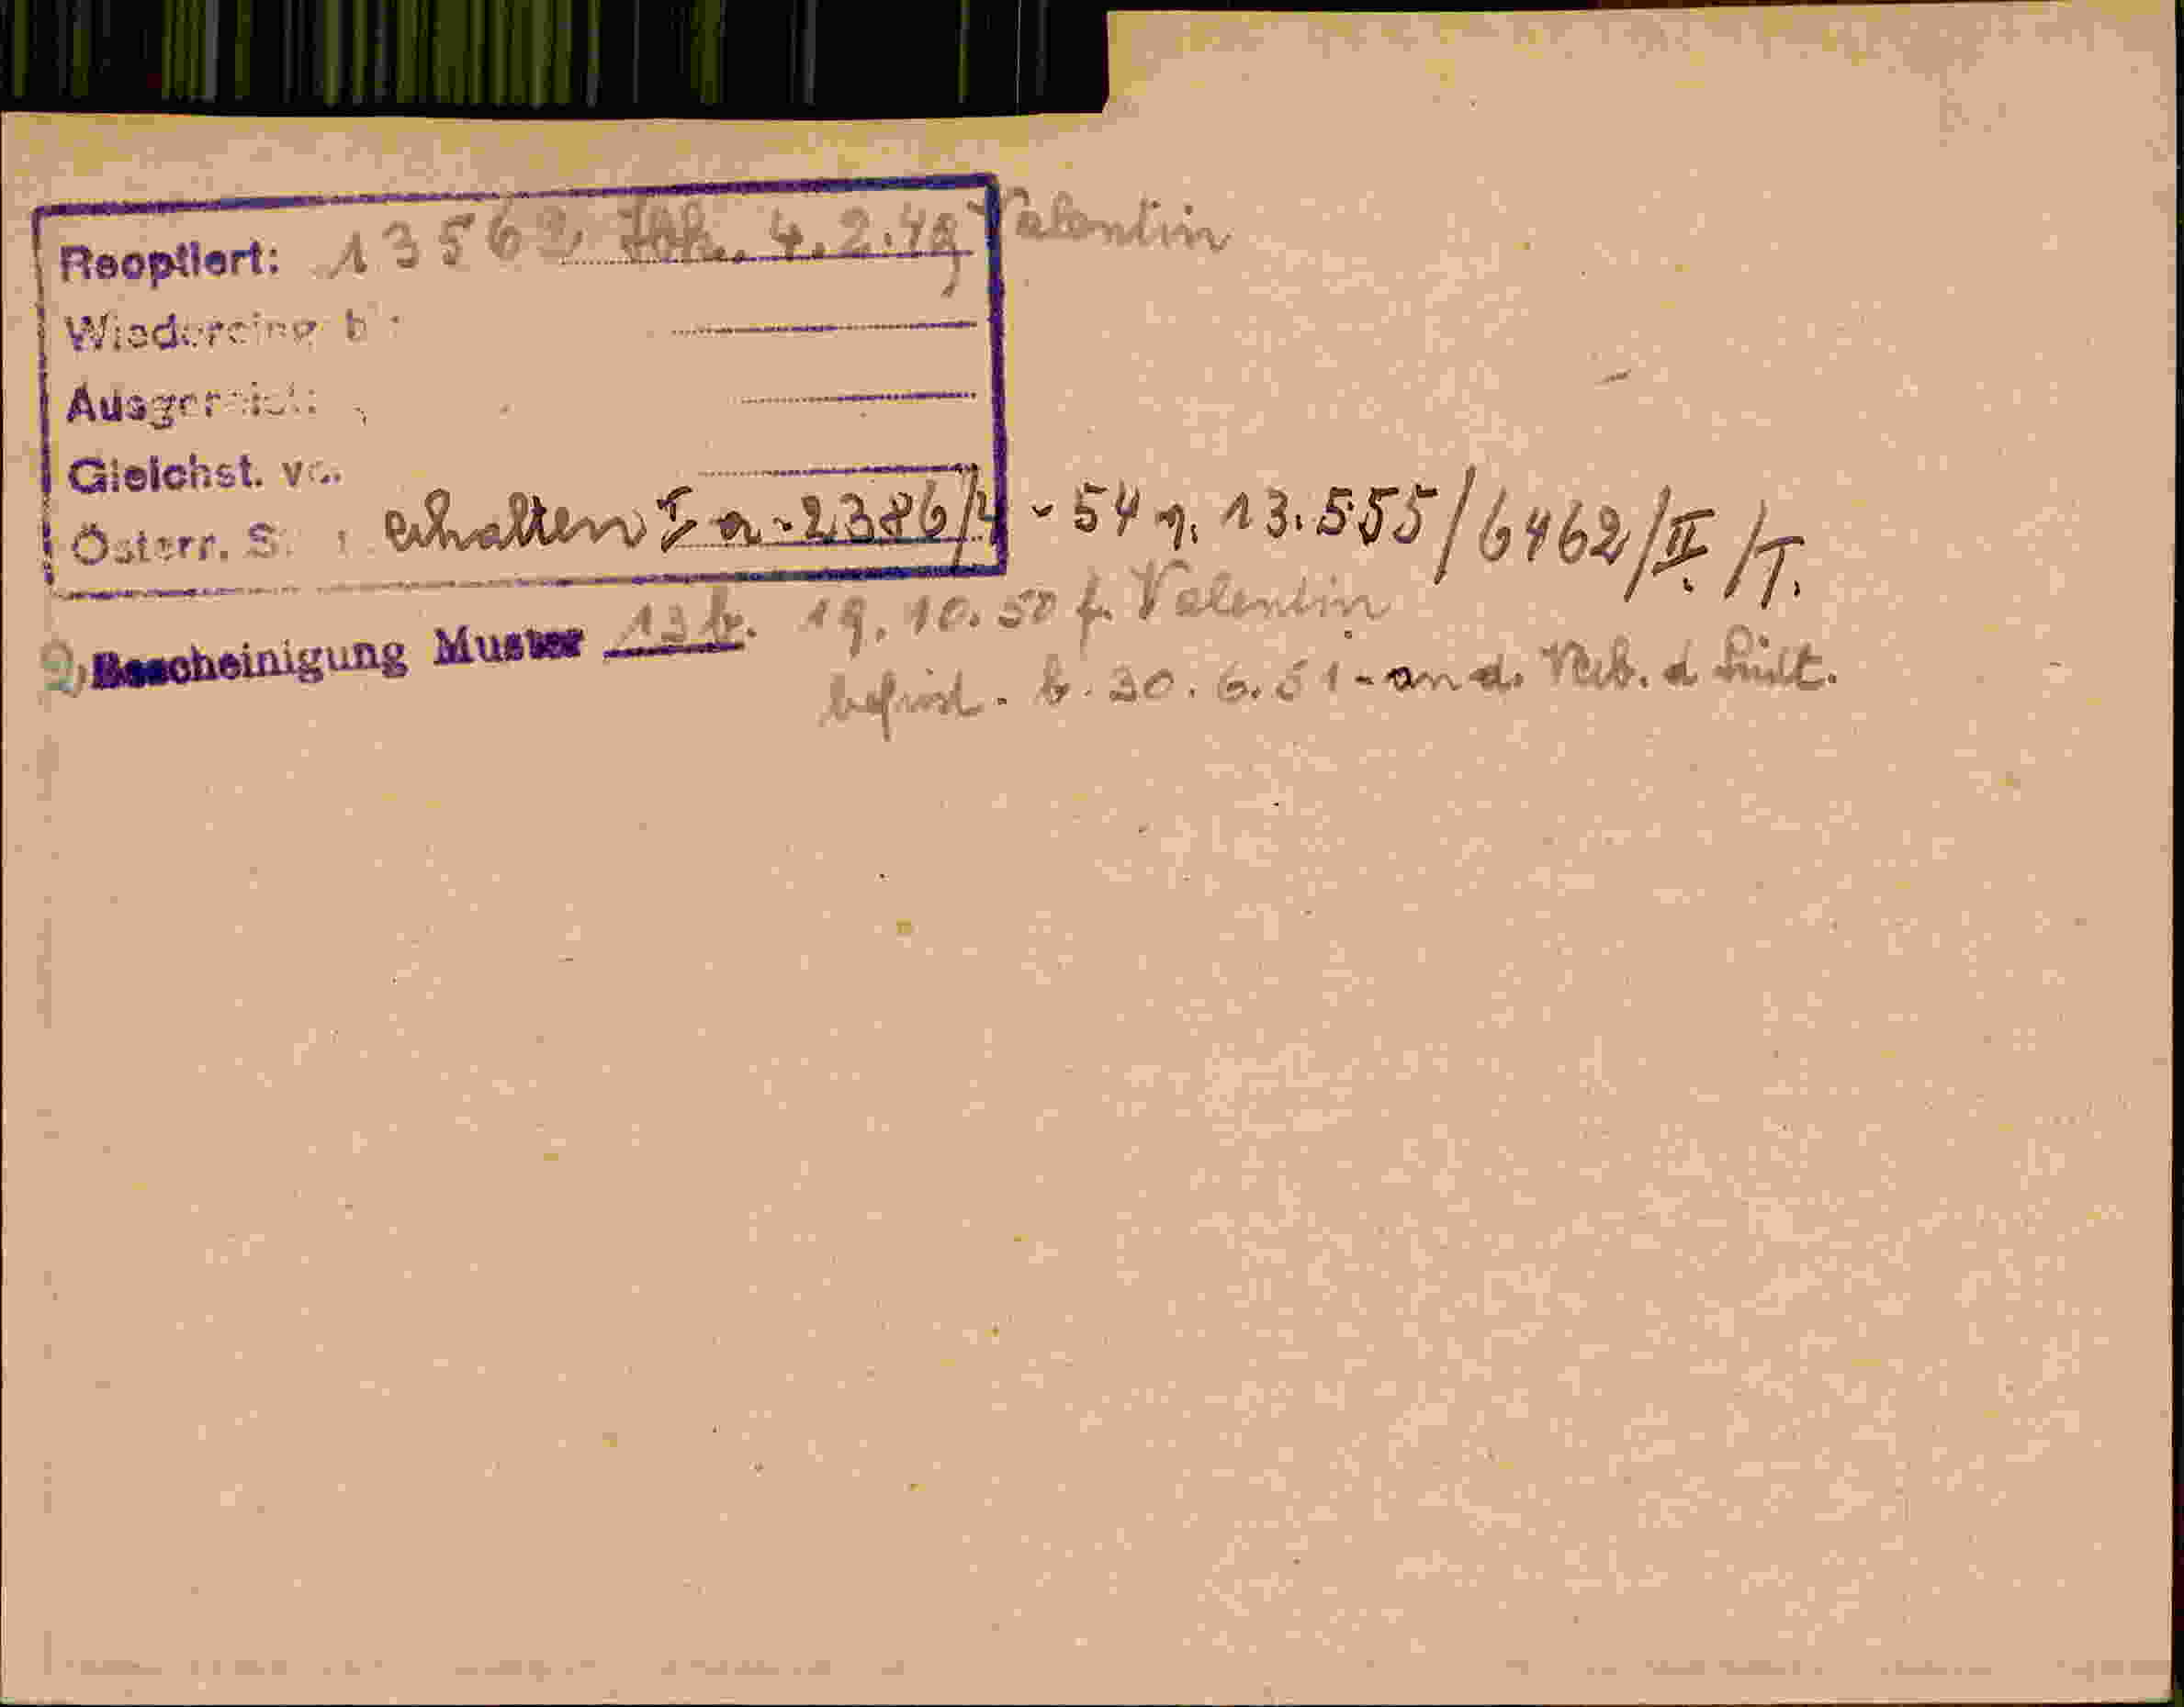 Reoptiert: 13562 4.2.49 Valentin
Gleichst.
Österr. S. erhalten Ia-2386/4-54 13.555/6462/II/T.
2) Bescheinigung Muster 13b. 19.10.50 f. Valentin
befrist. b. 30.6.51 - an d. Verb. d Südt.